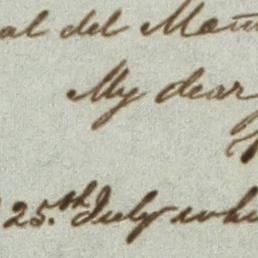 al del Mon
My dear
25.th July whi